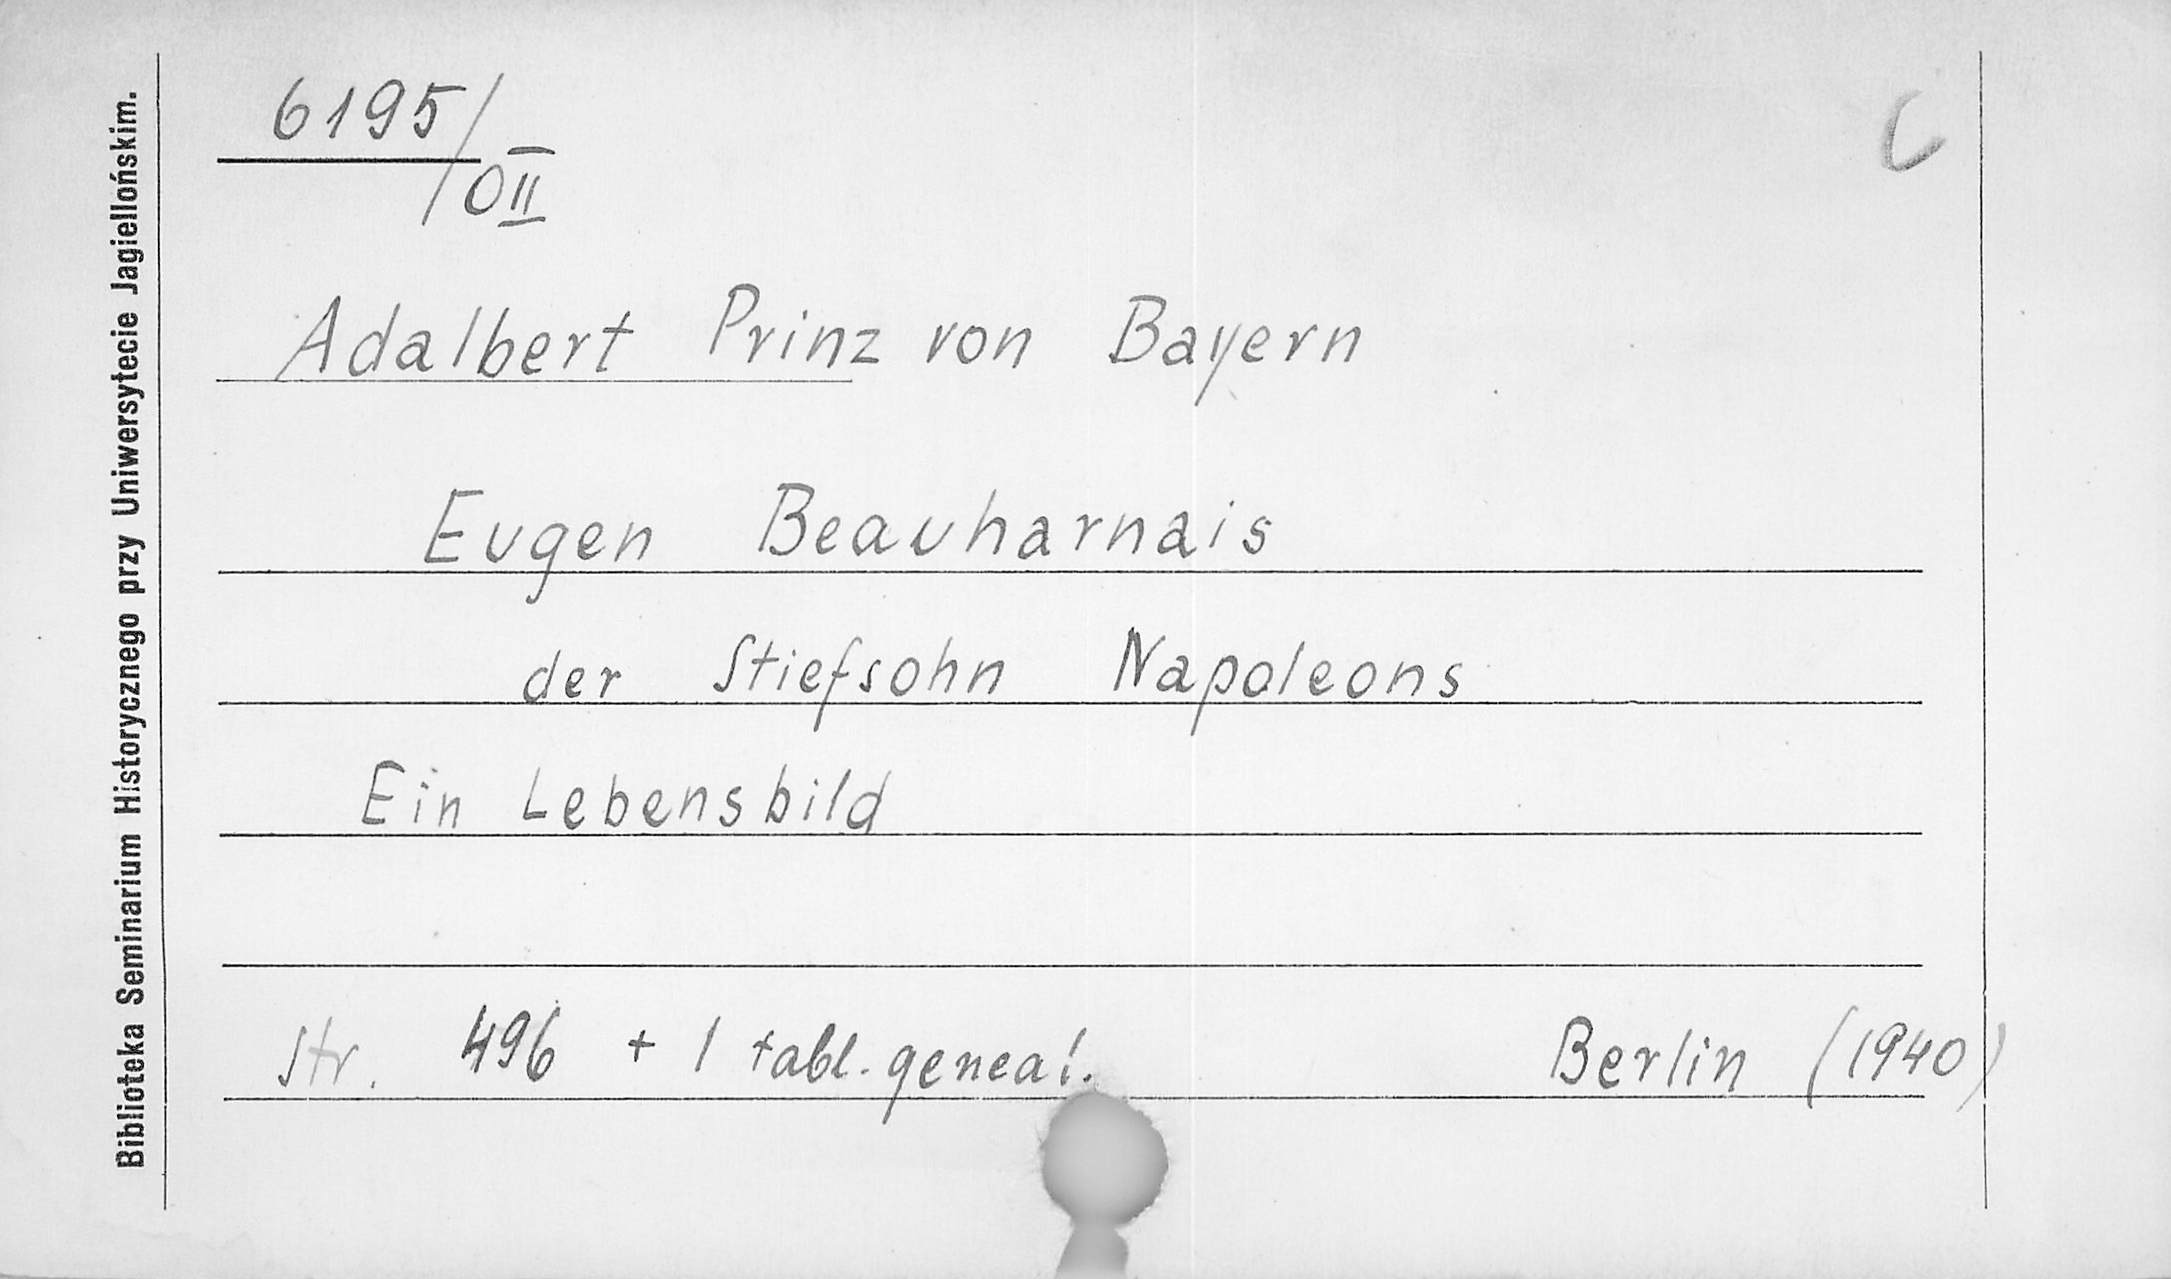 Biblioteka Seminarium Historycznego przy Uniwersytecie Jagiellońskim.
6195/OII
C
Adalbert Prinz von Bayern
Eugen Beauharnais
der Stiefsohn Napoleons
Ein Lebensbild
str. 496 + 1 tabl. geneal. Berlin (1940)